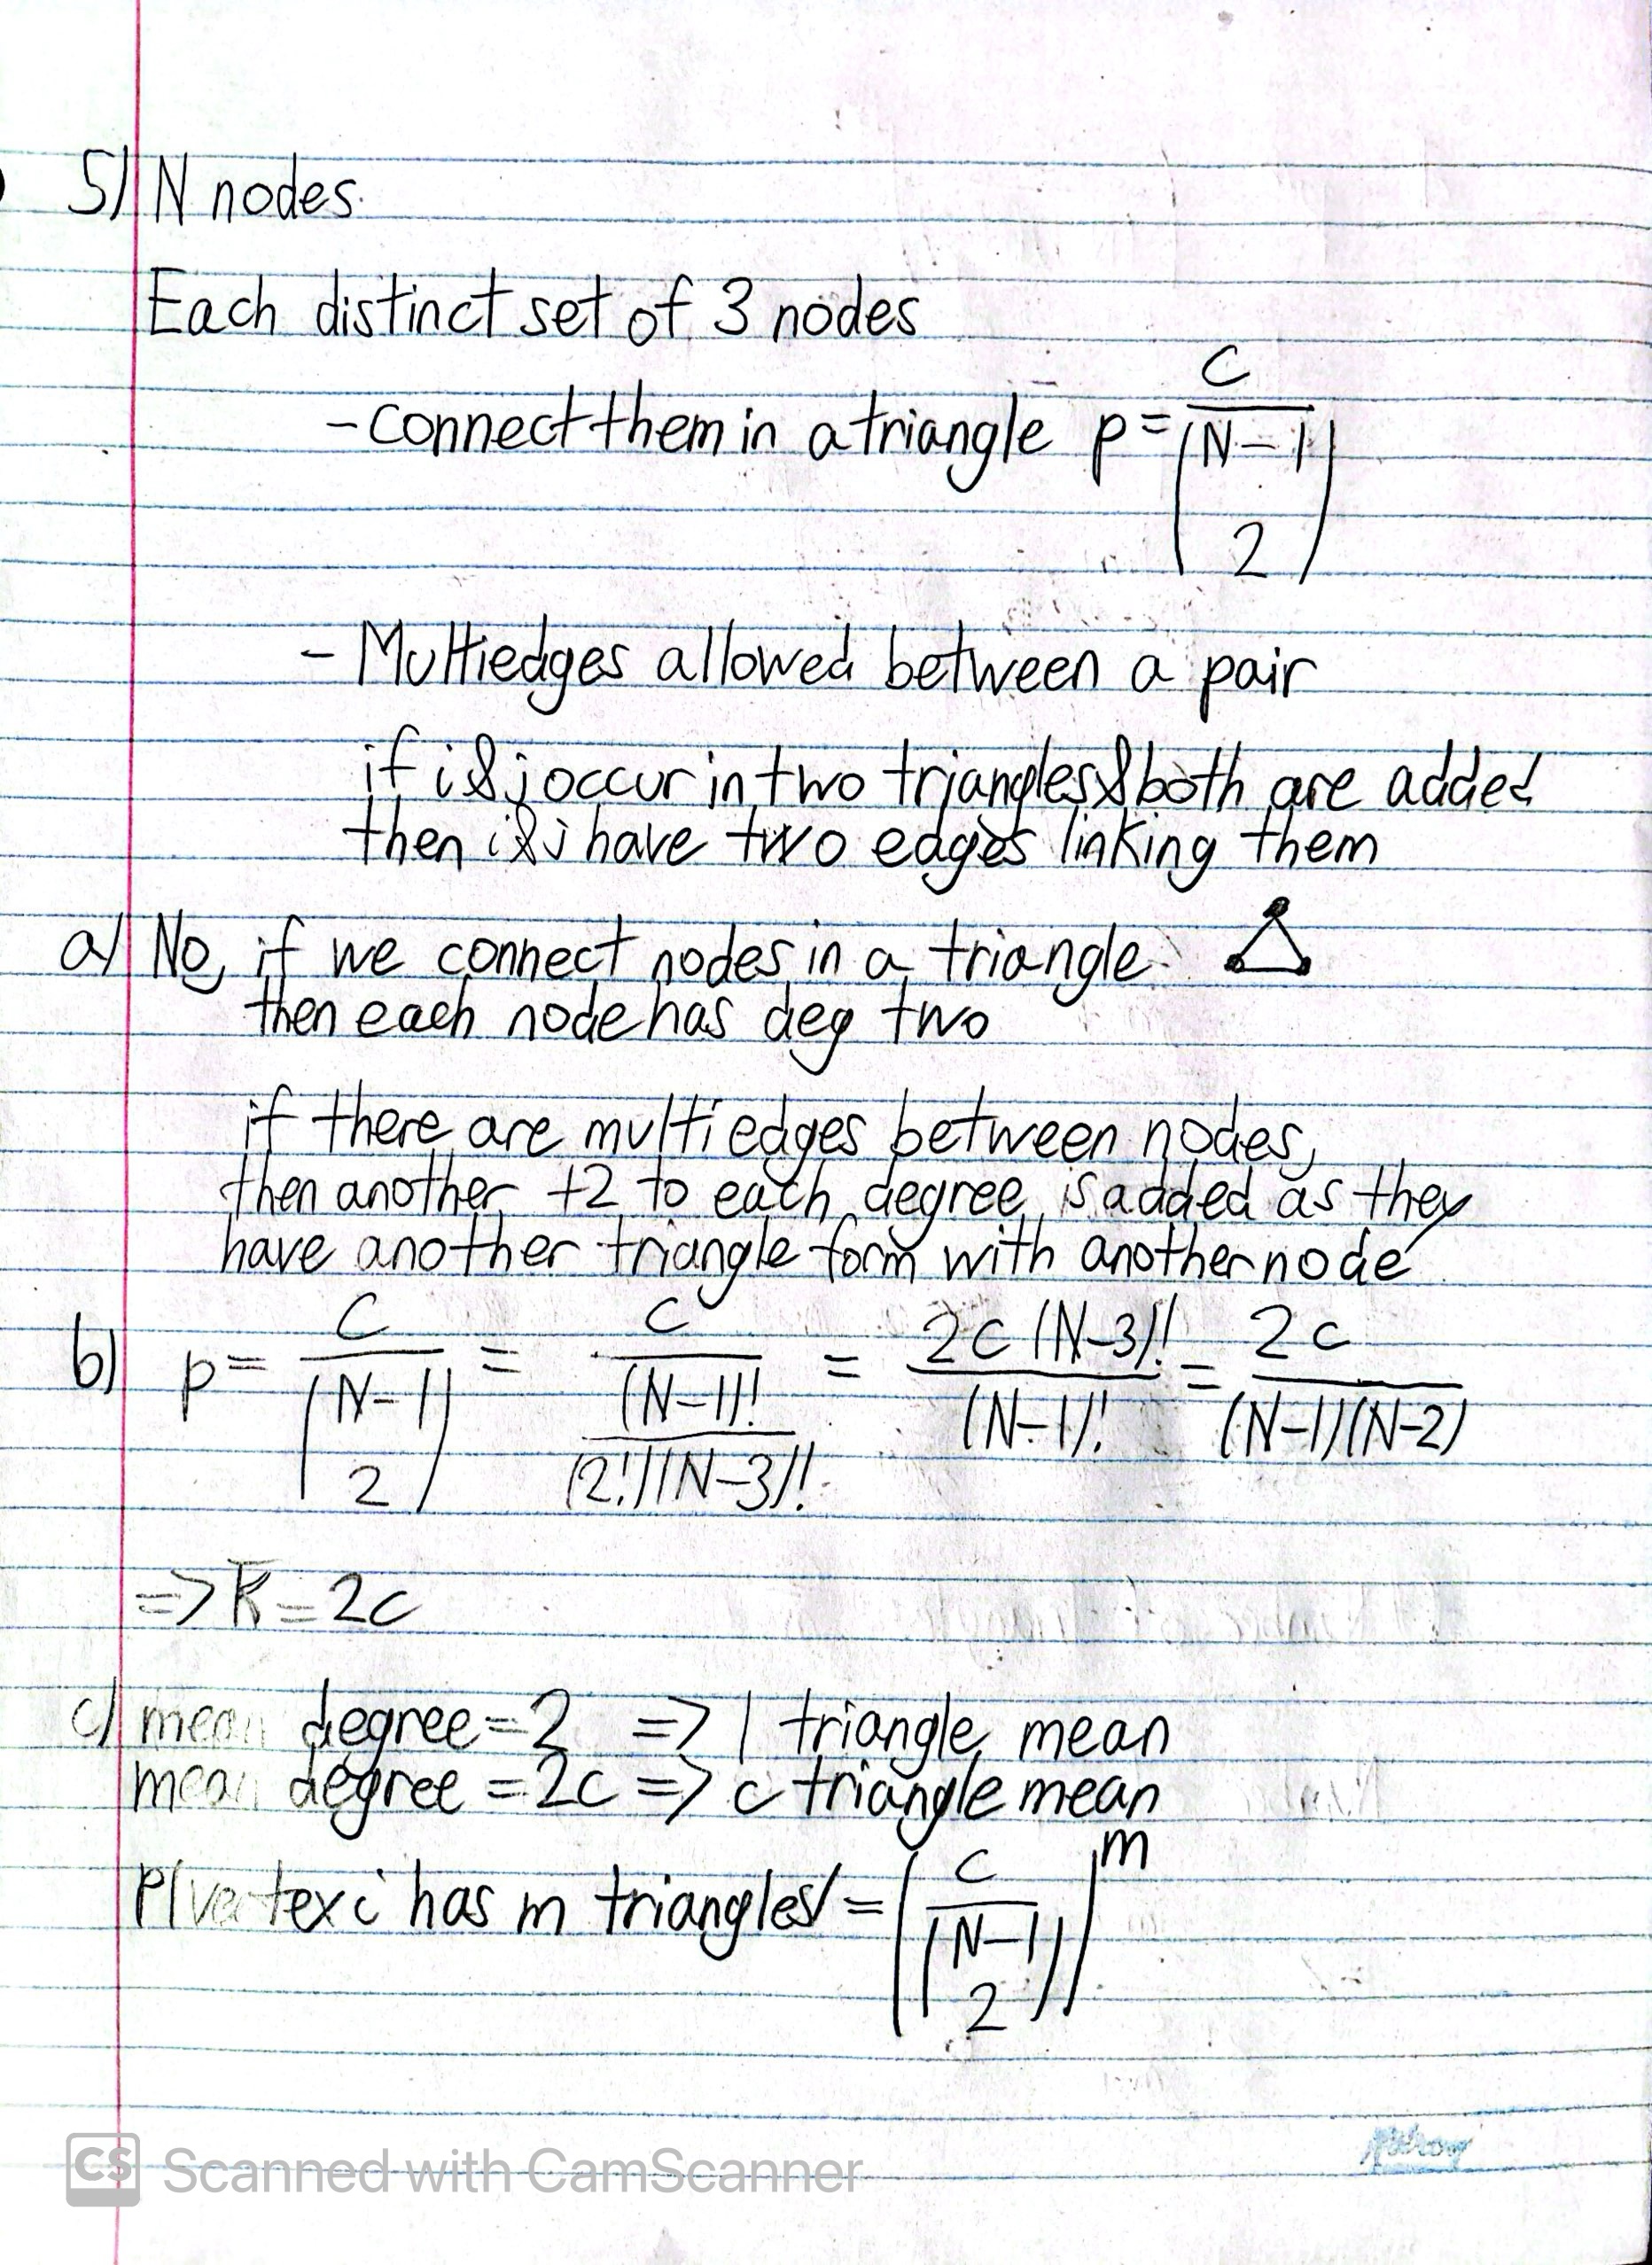 5) N nodes.
Each distinct set of 3 nodes
- connect them in a triangle p = c / (N-1 2)
- Multiedges allowed between a pair
if i & j occur in two triangles & both are added
then i & j have two edges linking them
a) No, if we connect nodes in a triangle
then each node has deg two
if there are multiedges between nodes,
then another +2 to each degree is added as they
have another triangle form with another node
b) p = c / (N-1 2) = c / ((N-1)! / (2!)(N-3)!) = 2c(N-3)! / (N-1)! = 2c / (N-1)(N-2)
=> k̅ = 2c
c) mean degree = 2 => 1 triangle mean
mean degree = 2c => c triangle mean
P(vertex i has m triangles) = (c / (N-1 2))^m
CS Scanned with CamScanner